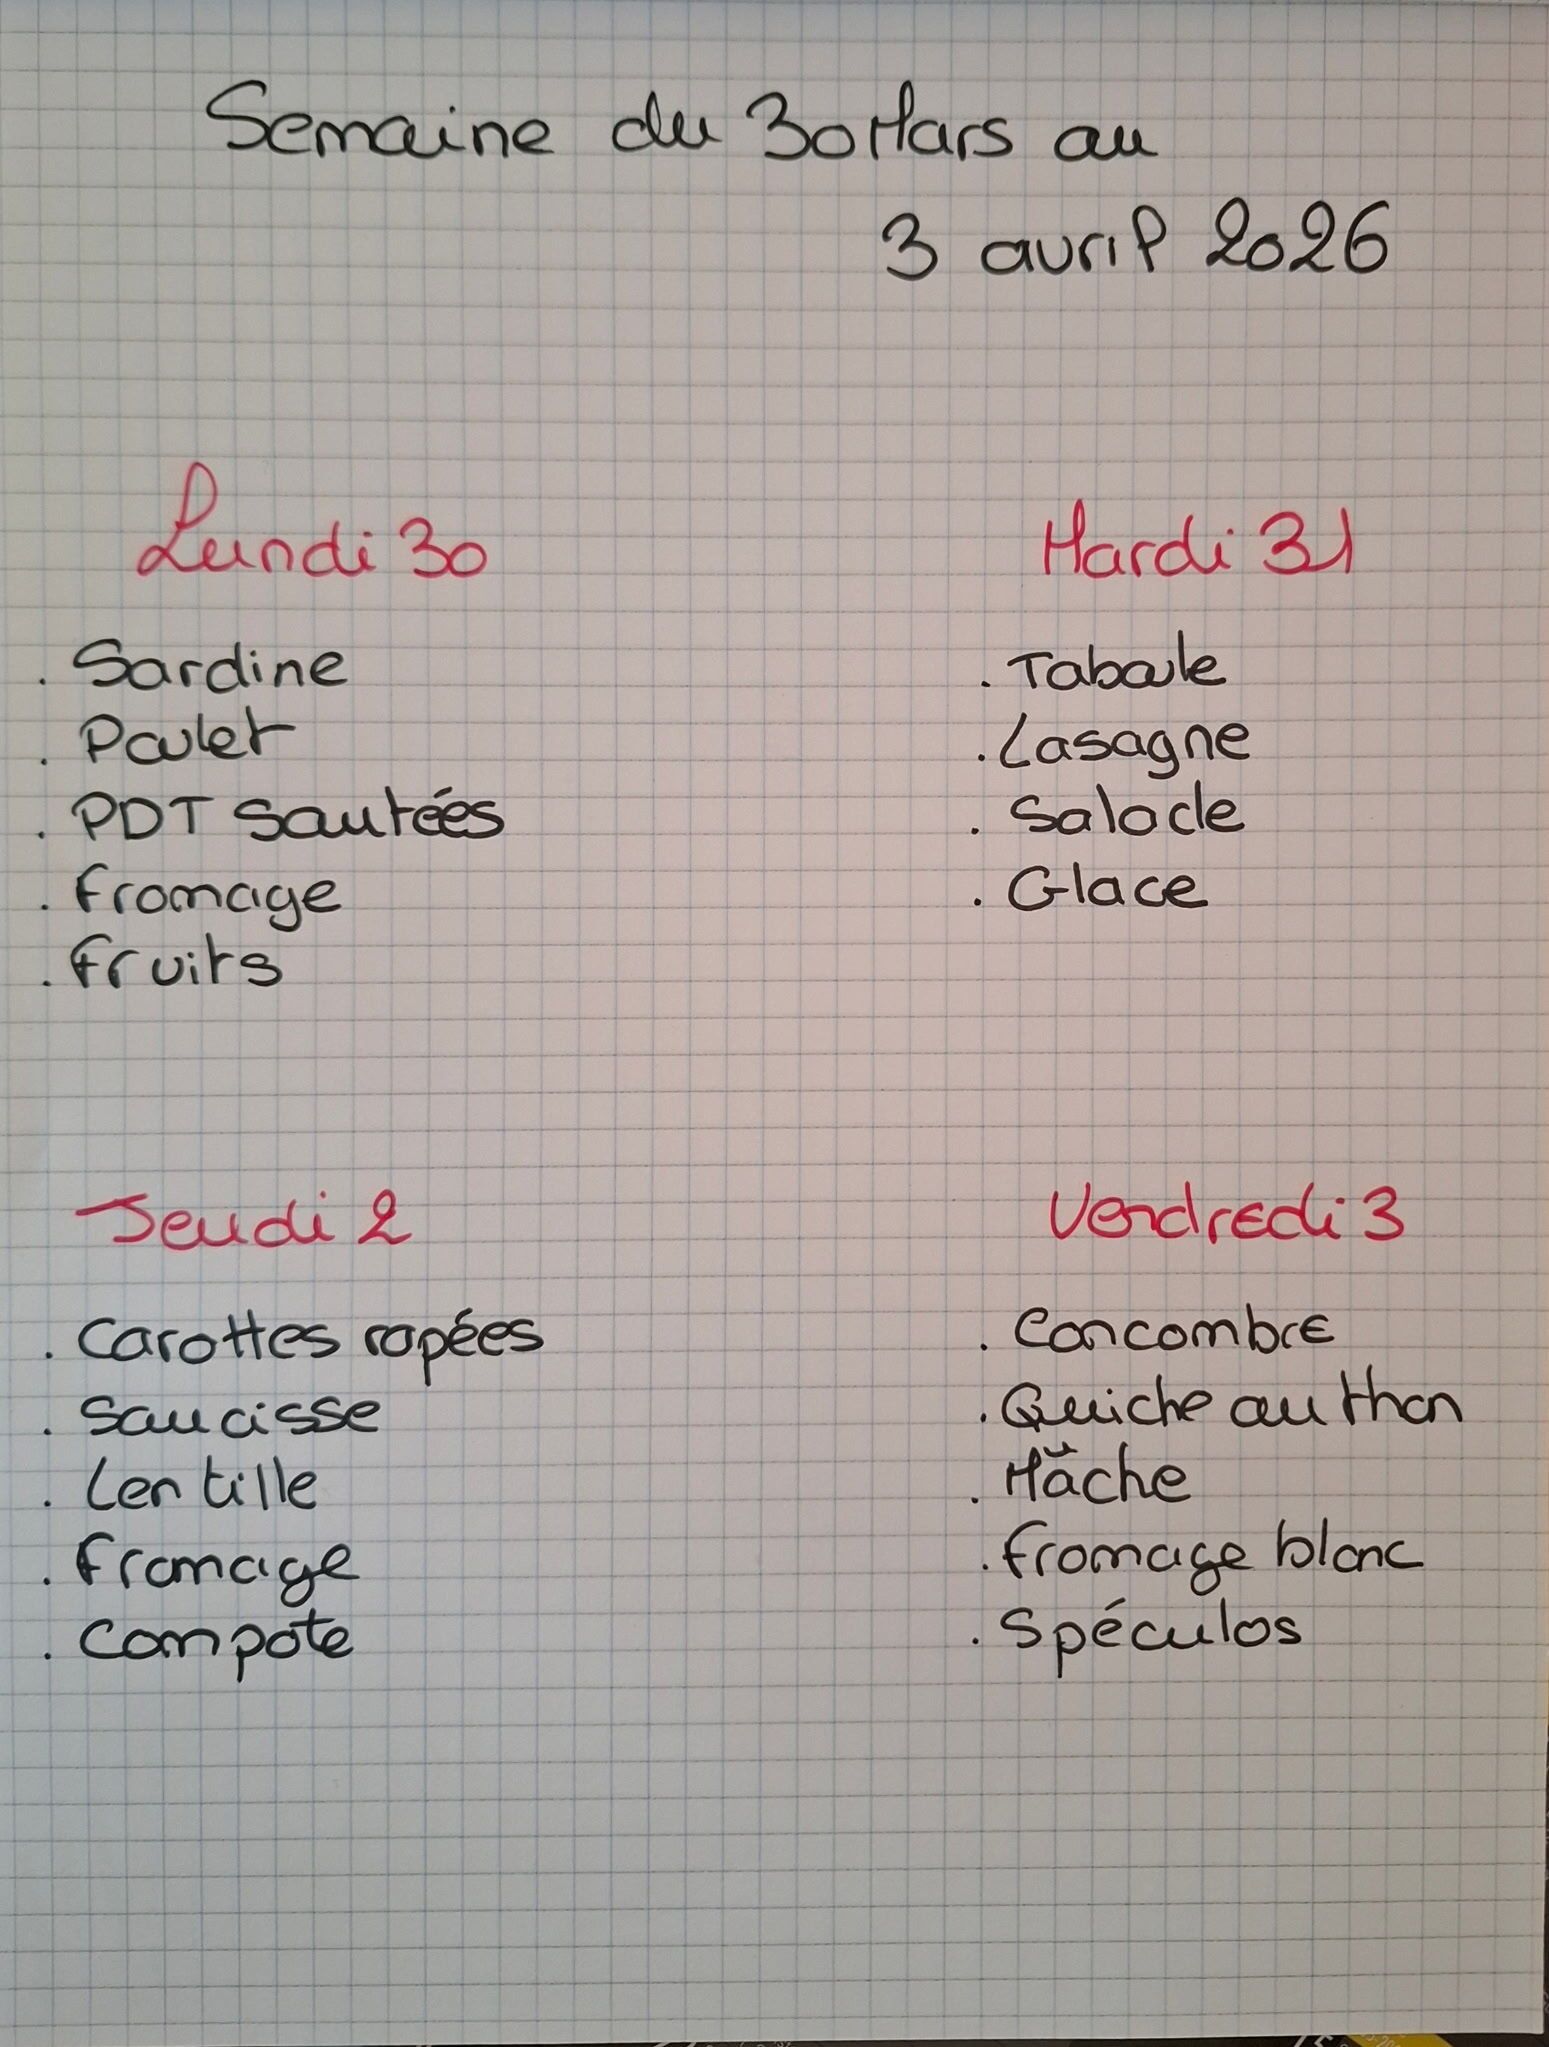 Semaine du 30 Mars au
3 avril 2026
Lundi 30
. Sardine
. Poulet
. PDT sautées
. fromage
. fruits
Mardi 31
. Taboule
. Lasagne
. Salade
. Glace
Jeudi 2
. Carottes rapées
. Saucisse
. Lentille
. fromage
. Compote
Vendredi 3
. Concombre
. Quiche au thon
. Mâche
. fromage blanc
. Spéculos